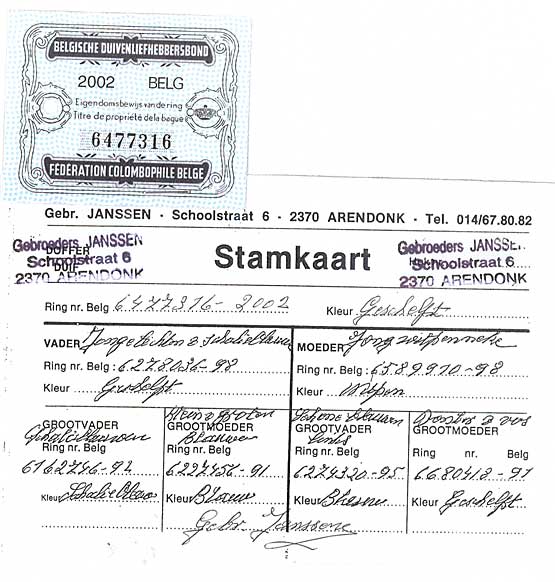 BELGISCHE DUIVENLIEFHEBBERSBOND
2002 BELG
Eigendomsbewijs van de ring
Titre de propriété de la bague
6477316
FÉDÉRATION COLOMBOPHILE BELGE
Gebr. JANSSEN · Schoolstraat 6 · 2370 ARENDONK · Tel. 014/67.80.82
Gebroeders JANSSEN
DOFFER
Schoolstraat 6
DUIF
2370 ARENDONK
Stamkaart
Gebroeders JANSSEN
Schoolstraat 6
2370 ARENDONK
Ring nr. Belg 6477316-2002 Kleur Geschelpt
VADER Jonge
Ring nr. Belg : 6278036-98
Kleur Geschelpt
MOEDER Jong
Ring nr. Belg : 6589970-98
Kleur
GROOTVADER
Ring nr. Belg
6162746-92
Kleur
Klein Groten
GROOTMOEDER
Blauwen
Ring nr. Belg
6227457-91
Kleur Blauw
Schone Blauwen
GROOTVADER
Links
Ring nr. Belg
6274320-95
Kleur
GROOTMOEDER
Ring nr. Belg
6680418-97
Kleur Geschelpt
Gebr Janssen